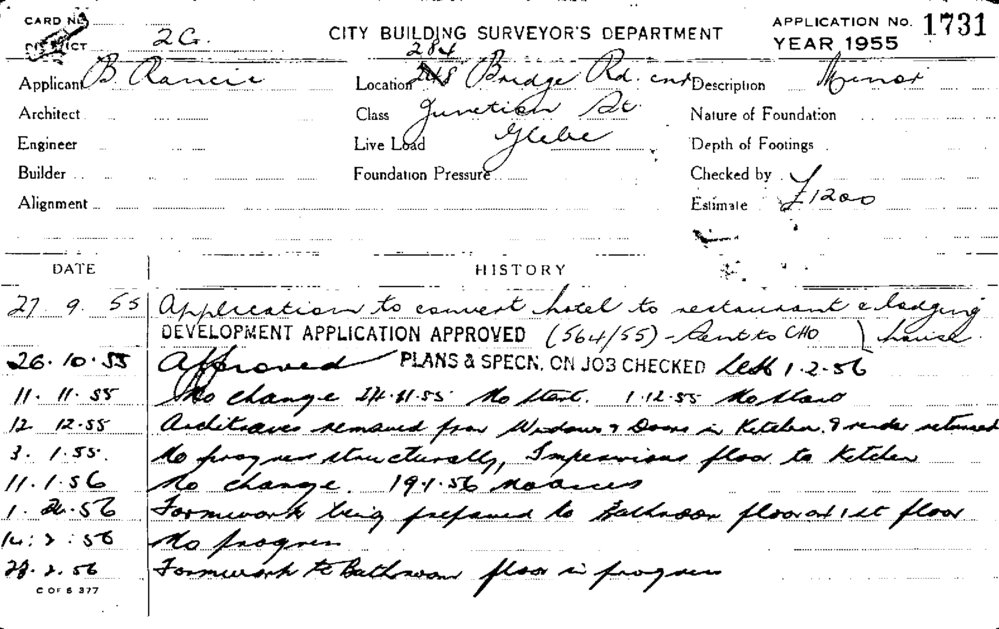 CARD No.
DISTRICT 2G.
CITY BUILDING SURVEYOR'S DEPARTMENT
APPLICATION No. 1731
YEAR 1955
Applicant B Rancie
Location 248 284 Bridge Rd. cnr
Description Minor
Architect
Class Junction St.
Nature of Foundation
Engineer
Live Load Glebe
Depth of Footings
Builder
Foundation Pressure
Checked by
Alignment
Estimate £1200
DATE HISTORY
27.9.55 Application to convert hotel to restaurant & lodging
DEVELOPMENT APPLICATION APPROVED (564/55) - Sent to CHO ) house.
26.10.55 Approved PLANS & SPECN. ON JOB CHECKED 1.2.56
11.11.55 No change 24.11.55 No start. 1.12.55 No start
12 12.55 Architraves removed from Windows & Doors in Kitchen & render returned
3.1.55. No progress structurally, Impervious floor to Kitchen
11.1.56 No change. 19.1.56 No access
1.2.56 Formwork being prepared to Bathroom floor at 1st floor
14:2:56 No progress
28.2.56 Formwork to Bathroom floor in progress
C OF S 377